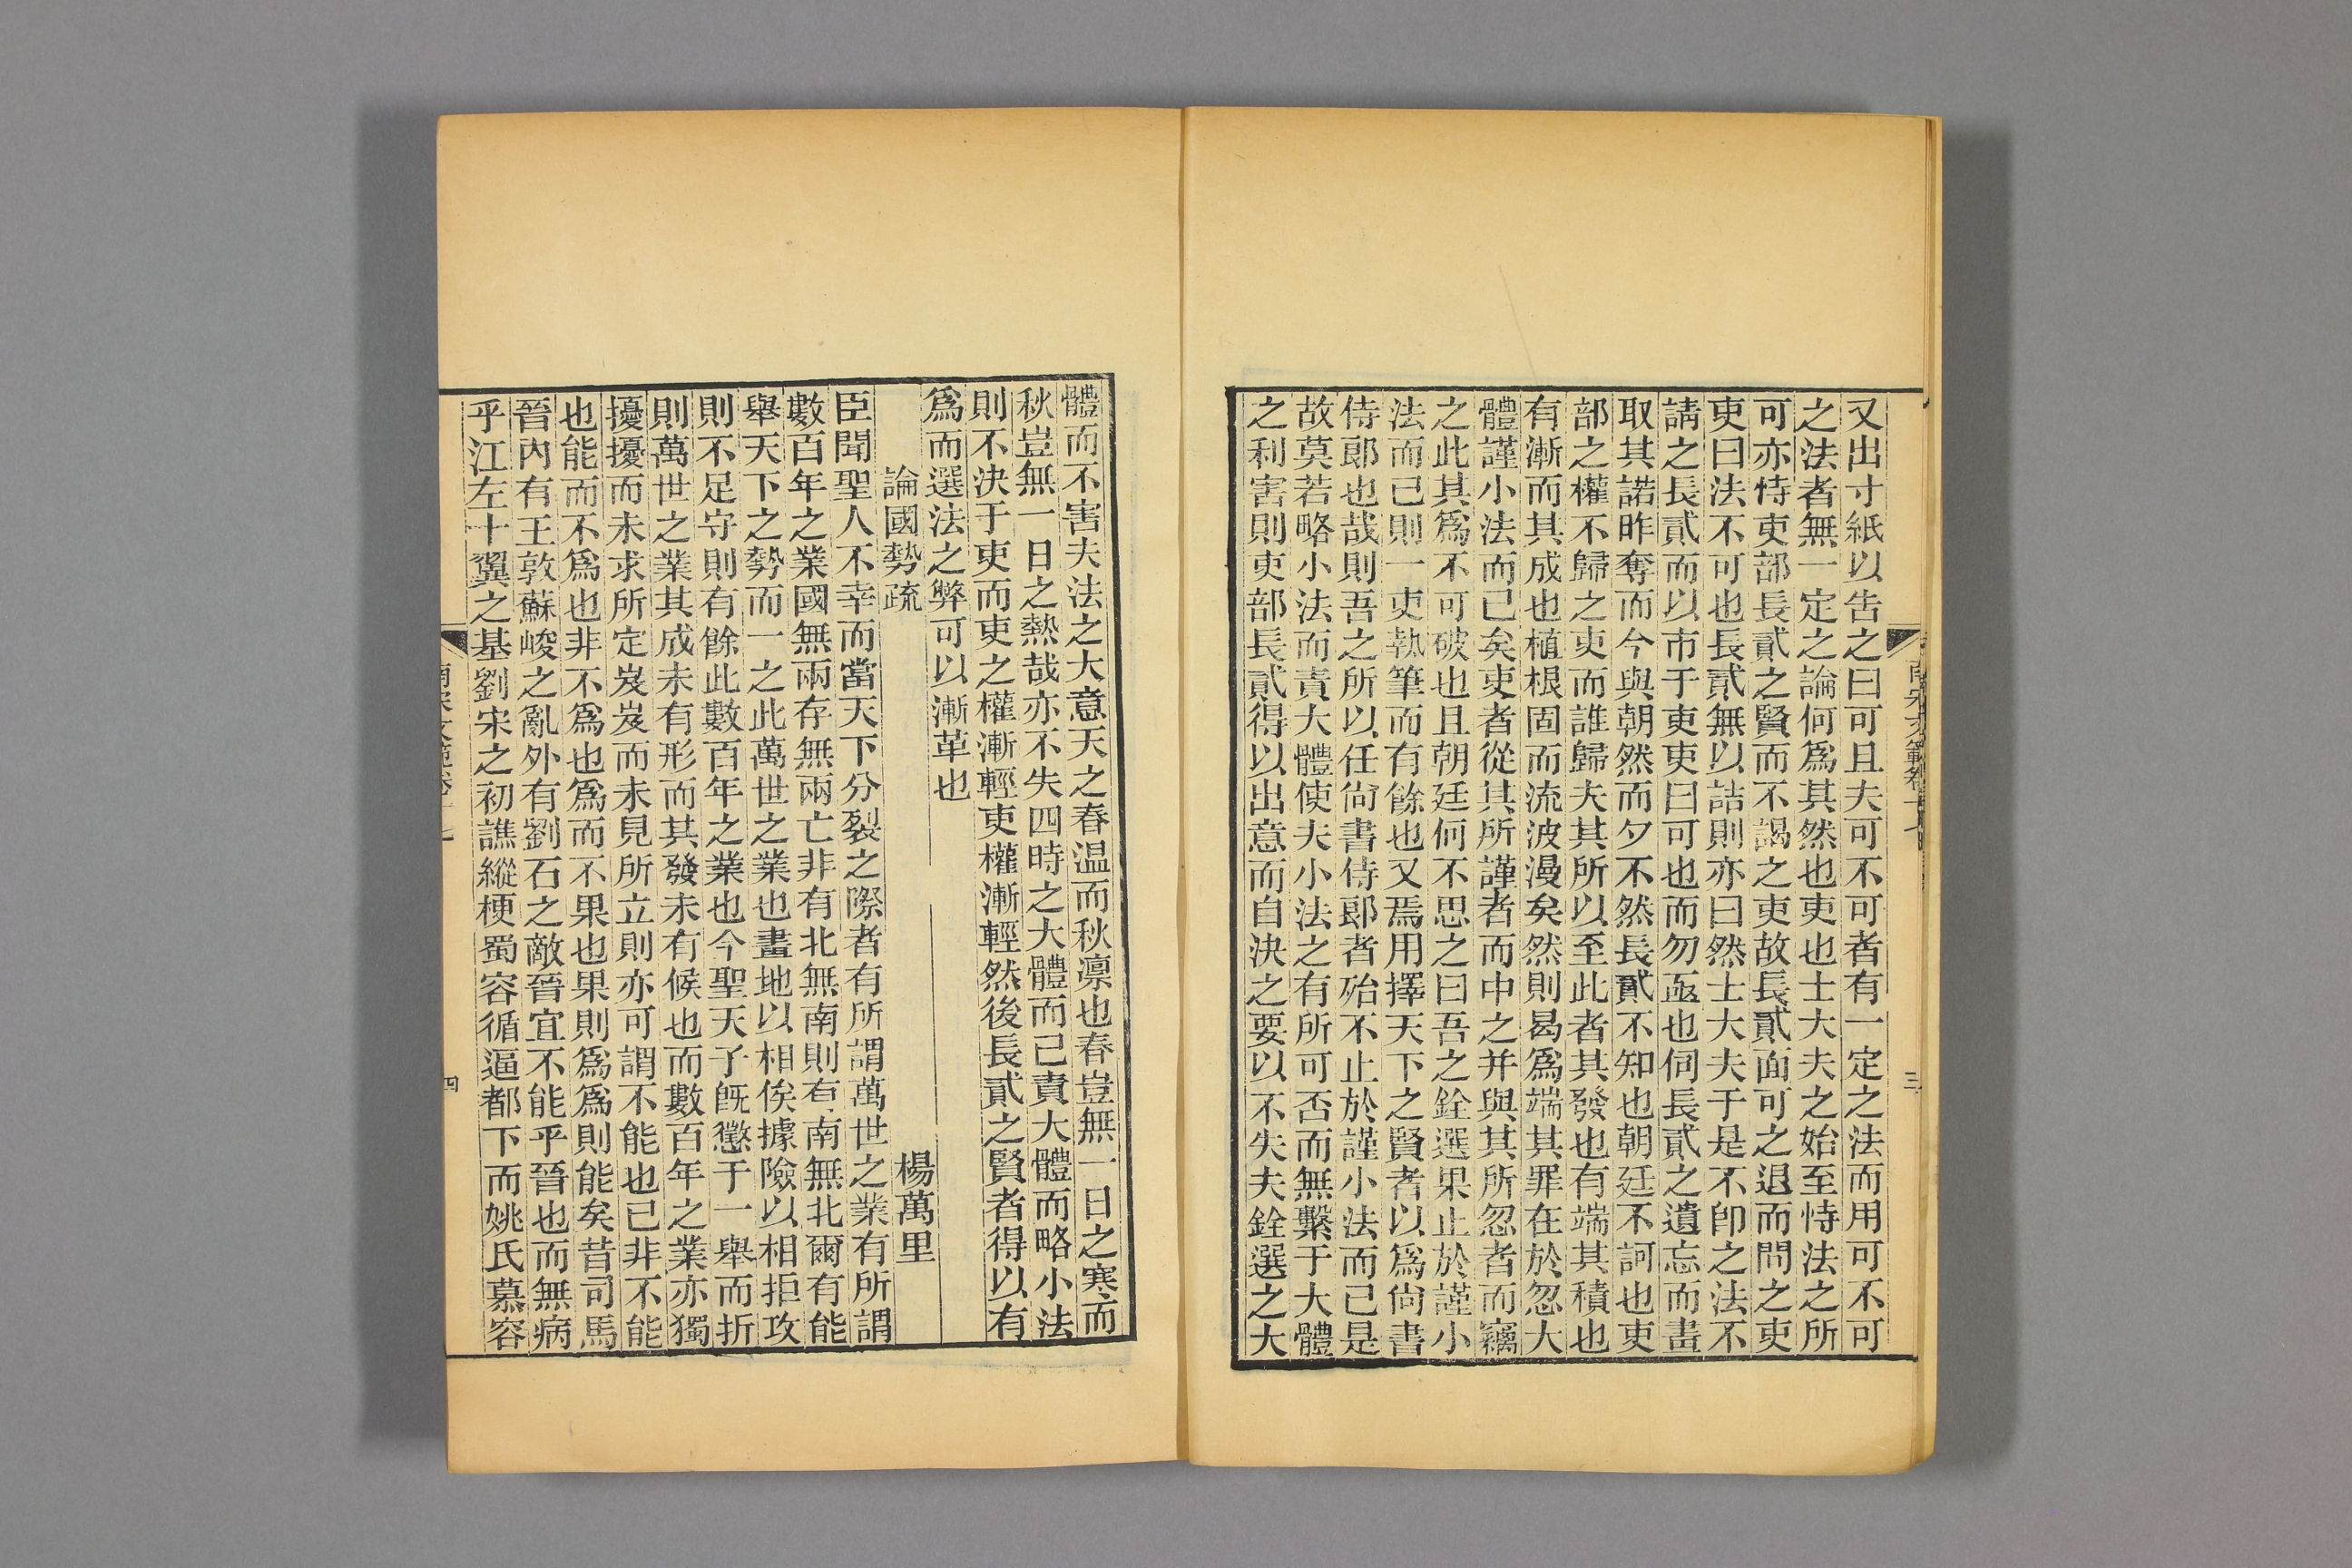 又出寸紙以告之曰可且夫可不可者有一定之法而用可不可
之法者無一定之論何爲其然也吏也士大夫之始至恃法之所
可亦恃吏部長貳之賢而不謁之吏故長貳面可之退而問之吏
吏曰法不可也長貳無以詰則亦曰然士大夫于是不卽之法不
請之長貳而以市于吏吏曰可也而勿亟也伺長貳之遺忘而畫
取其諾昨奪而今與朝然而夕不然長貳不知也朝廷不訶也吏
部之權不歸之吏而誰歸夫其所以至此者其發也有端其積也
有漸而其成也植根固而流波漫矣然則曷爲端其罪在於忽大
體謹小法而已矣吏者從其所謹者而中之并與其所忽者而竊
之此其爲不可破也且朝廷何不思之曰吾之銓選果止於謹小
法而已則一吏執筆而有餘也又焉用擇天下之賢者以爲尚書
侍郎也哉則吾之所以任尚書侍郎者殆不止於謹小法而已是
故莫若略小法而責大體使夫小法之有所可否而無繫于大體
之利害則吏部長貳得以出意而自決之要以不失夫銓選之大
南宋文範卷十七
三
體而不害夫法之大意天之春温而秋凛也春豈無一日之寒而
秋豈無一日之熱哉亦不失四時之大體而已責大體而略小法
則不決于吏而吏之權漸輕吏權漸輕然後長貳之賢者得以有
爲而選法之弊可以漸革也
論國勢疏
楊萬里
臣聞聖人不幸而當天下分裂之際者有所謂萬世之業有所謂
數百年之業國無兩存無兩亡非有北無南則有南無北爾有能
舉天下之勢而一之此萬世之業也畫地以相俟據險以相拒攻
則不足守則有餘此數百年之業也今聖天子旣懲于一舉而折
則萬世之業其成未有形而其發未有候也而數百年之業亦獨
擾擾而未求所定岌岌而未見所立則亦可謂不能也已非不能
也能而不爲也非不爲也爲而不果也果則爲爲則能矣昔司馬
晉內有王敦蘇峻之亂外有劉石之敵晉宜不能乎晉也而無病
乎江左十翼之基劉宋之初譙縱梗蜀容循逼都下而姚氏慕容
南宋文範卷十七
四